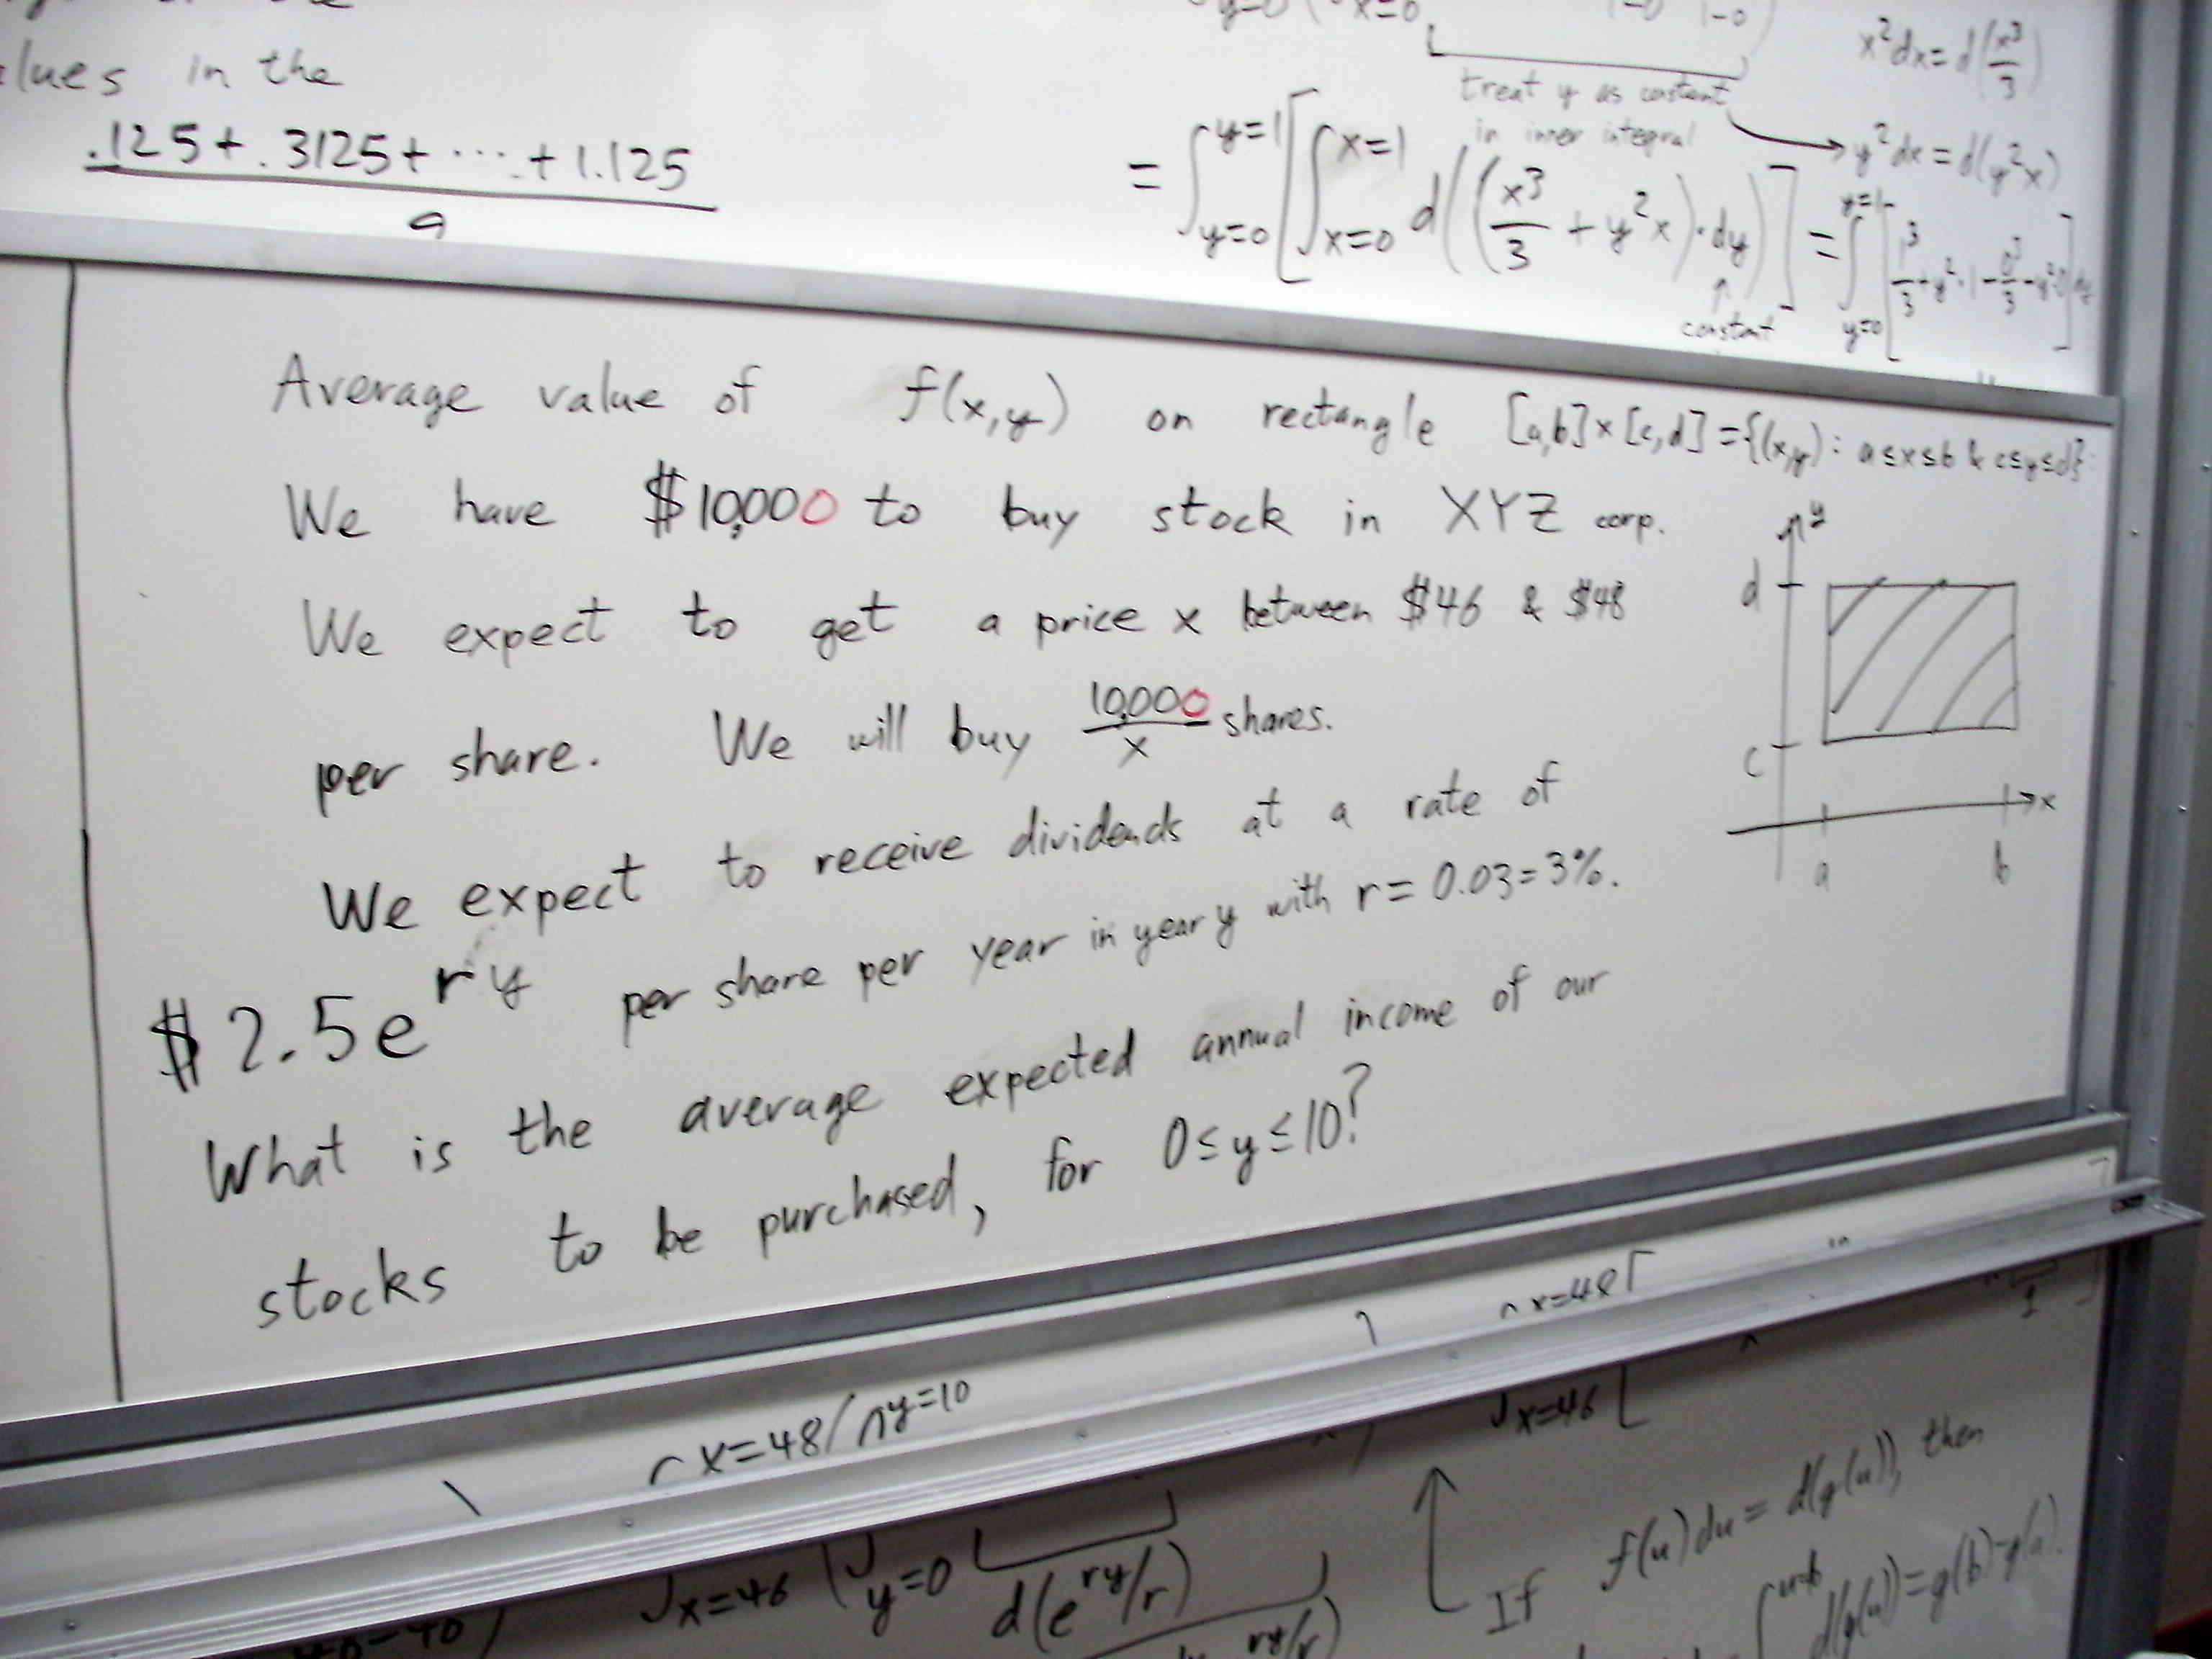 values in the
.125+.3125+ ⋯ +1.125
9
y=0 x=0 1-0 1-0
treat y as constant
in inner integral
x²dx = d(x³/3)
y²dx = d(y²x)
= ∫_{y=0}^{y=1} [ ∫_{x=0}^{x=1} d((x³/3 + y²x)·dy) ] = ∫_{y=0}^{y=1} [ 1³/3 + y²·1 - 0³/3 - y²·0 ] dy
↑
constant
Average value of f(x,y) on rectangle [a,b]×[c,d] = {(x,y): a≤x≤b & c≤y≤d}.
We have $10,000 to buy stock in XYZ corp.
We expect to get a price x between $46 & $48
per share. We will buy 10,000/x shares.
We expect to receive dividends at a rate of
$2.5e^{ry} per share per year in year y with r = 0.03 = 3%.
What is the average expected annual income of our
stocks to be purchased, for 0≤y≤10?
y
d
c
x
a b
x=48 y=10 x=48
x=46 y=0 x=46
d(e^{ry}/r)
If f(u)du = d(g(u)), then
∫^{u=b} d(g(u)) = g(b)-g(a).